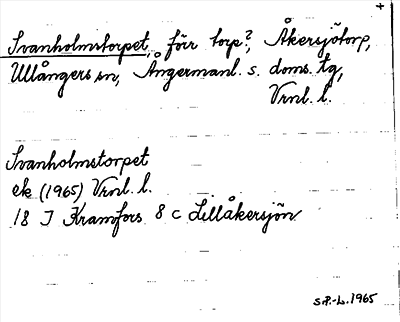 +
Svanholmstorpet, förr torp?, Åkersjötorp,
Ullångers sn, Ångermanl. s. doms. tg,
Vrnl. l.
Svanholmstorpet
ek (1965) Vrnl. l.
18 J Kramfors 8 c Lillåkersjön
S.P.-L. 1965